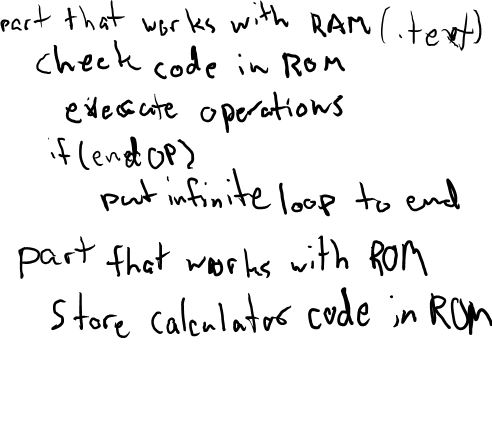 part that works with RAM (.text)
check code in ROM
execute operations
if (end OP)
put infinite loop to end
part that works with ROM
Store calculator code in ROM